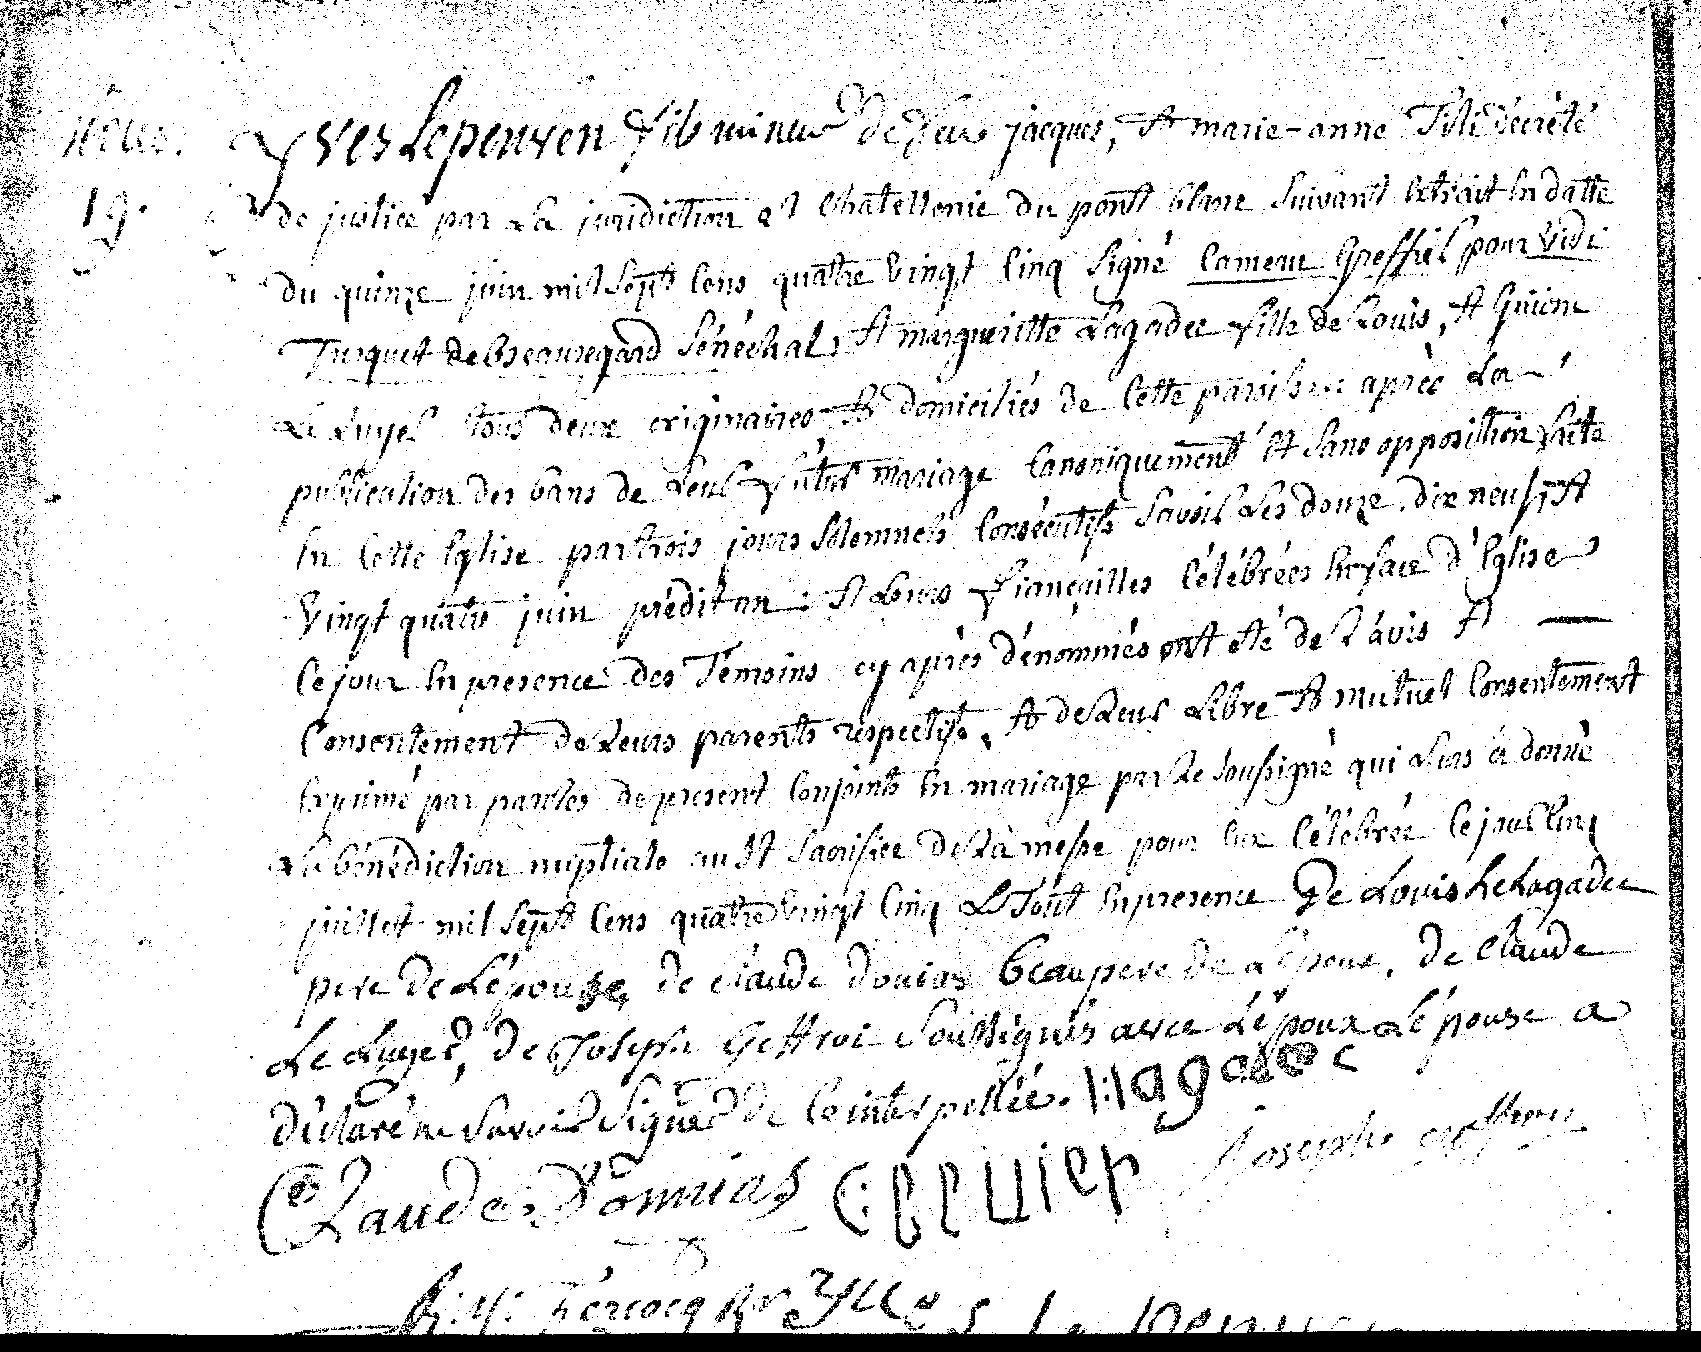 19.
Yves Lepenven fils mineur de feu jacques, et marie-anne Tili décrété
de justice par La juridiction et Chatellenie du pont blanc suivant extrait En datte
du quinze juin mil Sept Cens quatre Vingt Cinq Signé Cameau Greffier pour Vide
Turquet de Beauregard Sénéchal, et margueritte Lagadec fille de Louis, et Guione
Le Luyer tous deux originaires et domiciliés de Cette paroisse après La
publication des bans de Leur futur mariage Canoniquement et Sans opposition faite
En Cette Eglise par trois jours Solemnels Consécutifs Savoir Les douze, dix neuf, et
Vingt quatre juin prédit an : et Leurs fiançailles Célébrées En face d'Eglise
Ce jour En presence des Témoins cy après dénommés ont été de L'avis et
Consentement de Leurs parents respectifs, et de Leur Libre et mutuel Consentement
Exprimé par paroles de present Conjoints En mariage par Le Soussigné qui Leurs à donné
La bénédiction nuptiale au St Sacrifice de La messe pour Eux Célébrée Ce jour Cinq
juillet mil Sept Cens quatre Vingt Cinq Le Tout En presence De Louis Le Lagadec
pere de L'épouse, de claude Donias Beaupere de L'Epoux, de Claude
Le Luyer, de Joseph Geffroi Soussignés avec L'époux L'épouse a
déclaré ne Savoir Signer de Ce interpellée. Llagadec
Claude Donnias C: Lelluier Joseph geffroy
Yves Le Penven